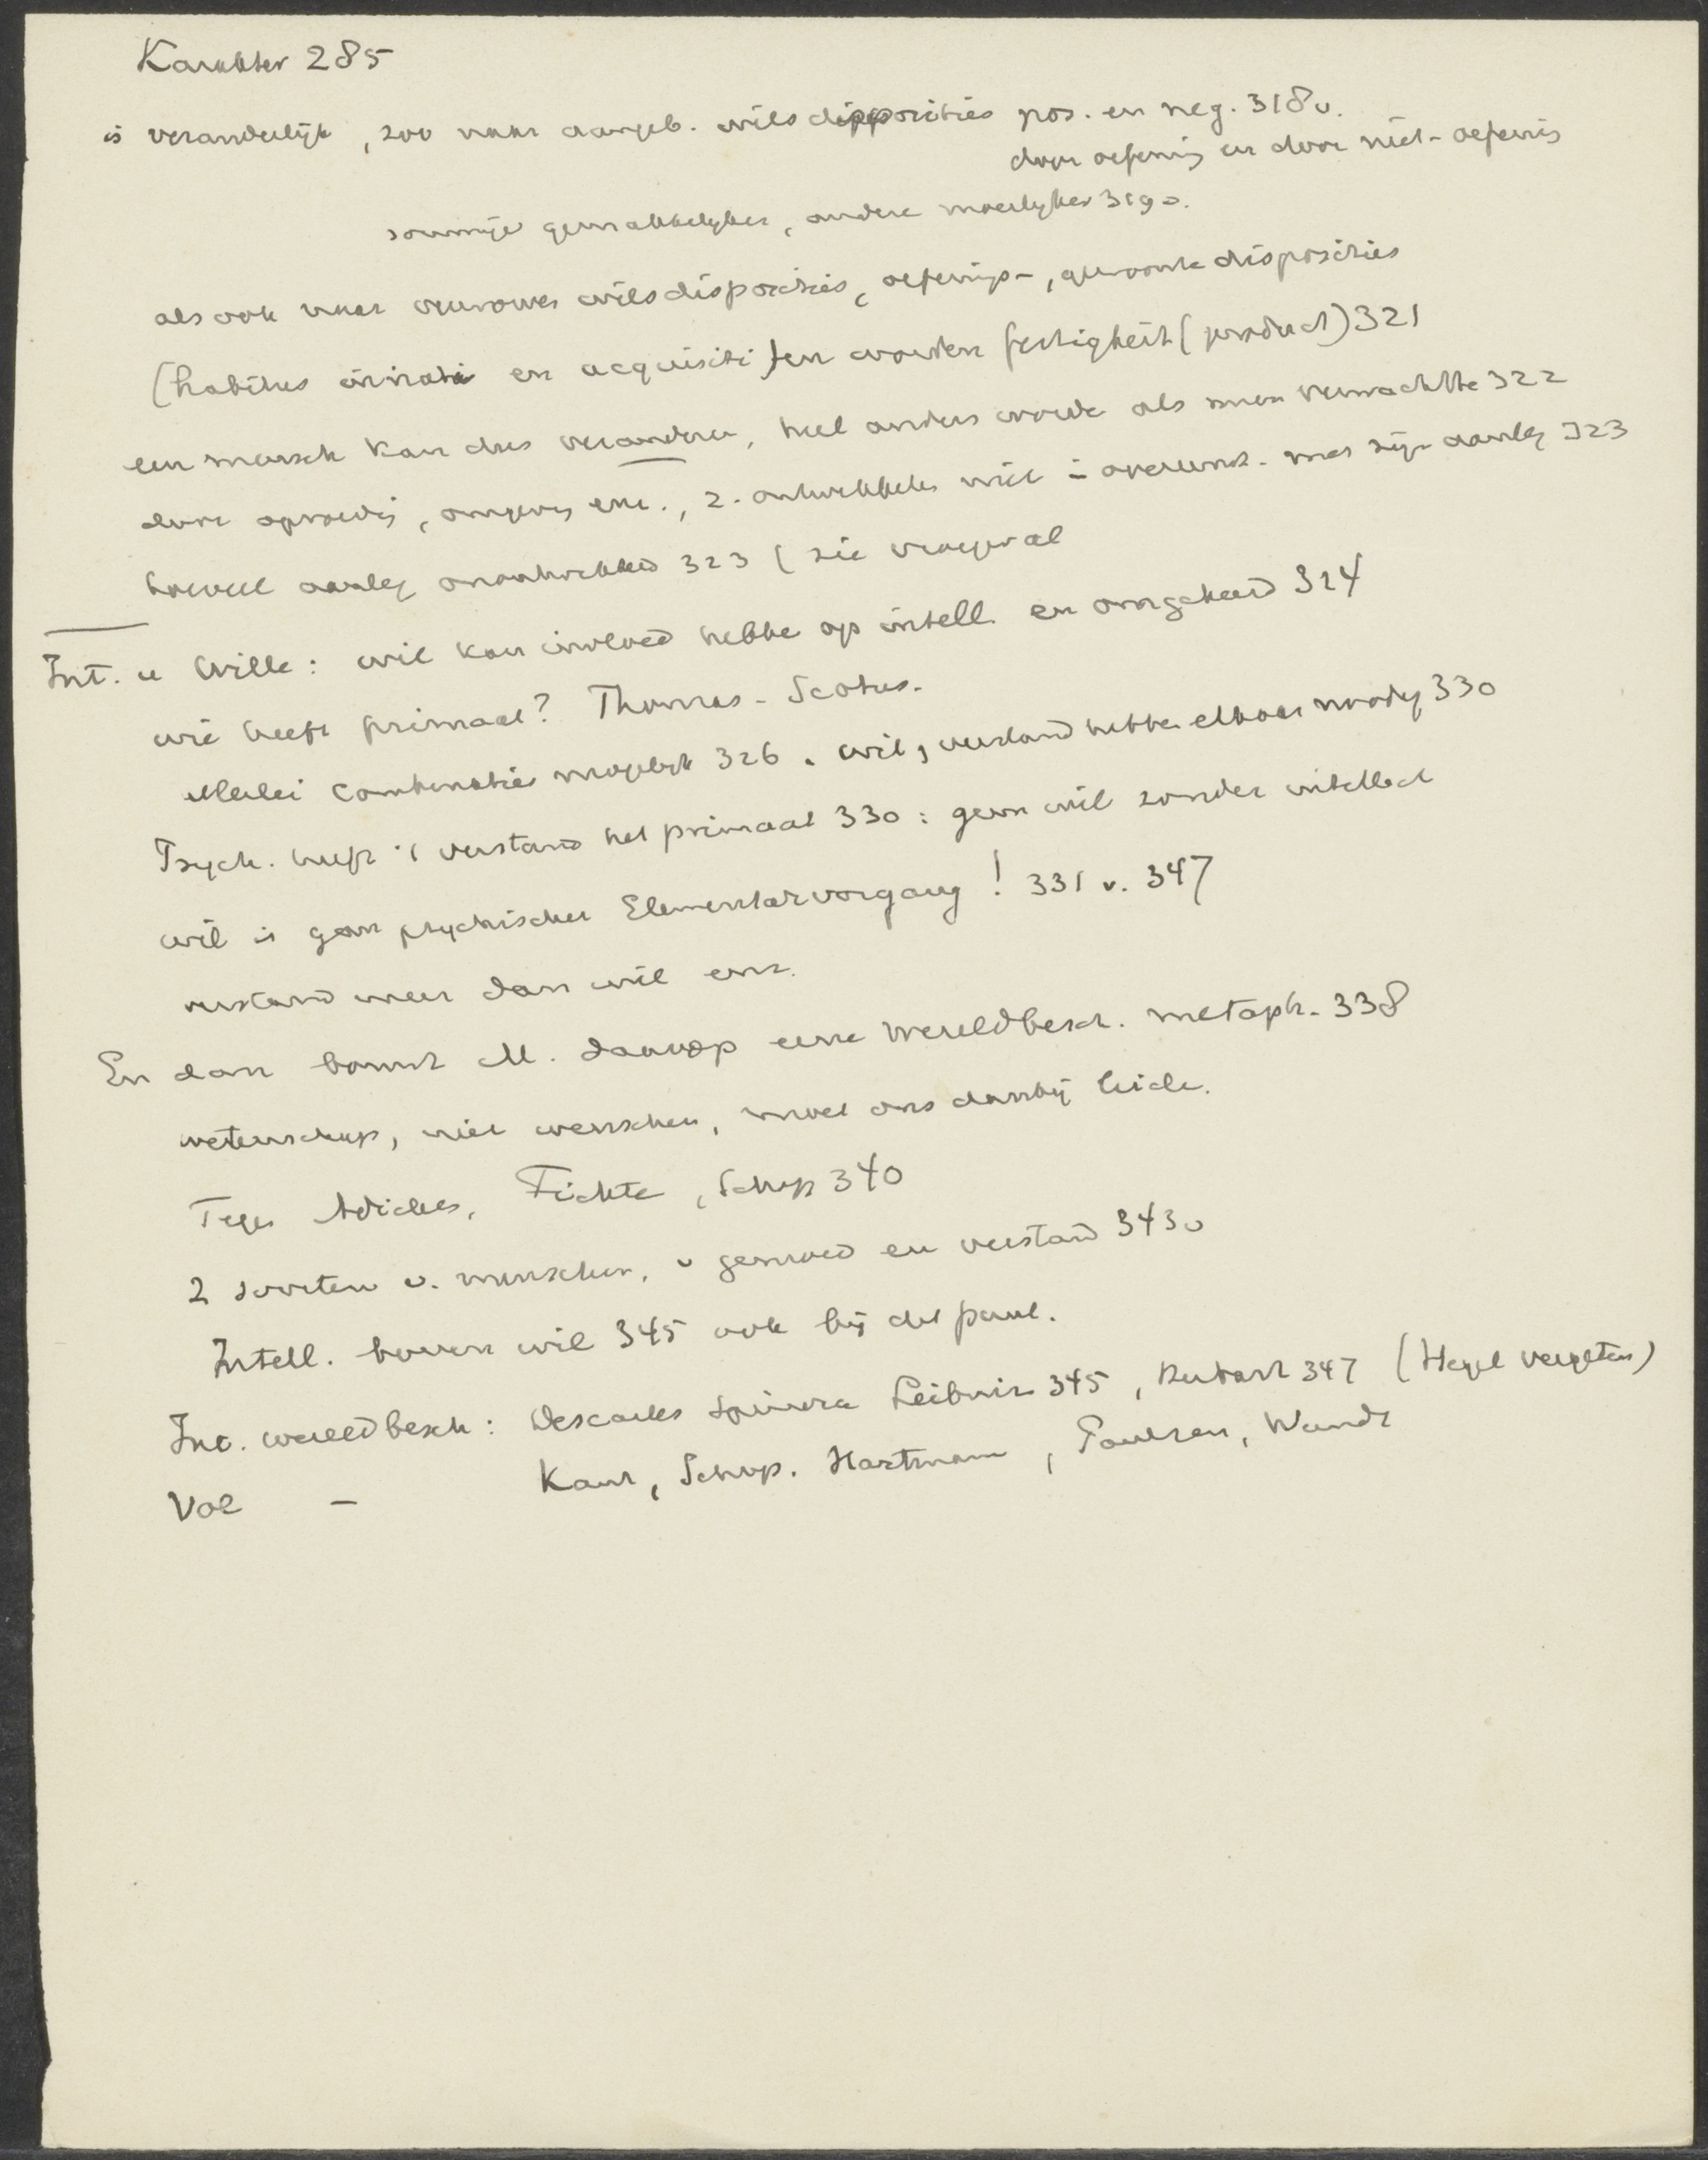 Karakter 285
is veranderlijk, zoo wat aangeb. wilsdisposities pos. en neg. 318v.
door oefening en door niet-oefenis
sommige gemakkelyker, andere moeilyker 319v.
als ook wat verworven wilsdisposities, oefenings-, gewoonte disposities
(habitus innati en acquisiti) en worden fertigkeit (product) 321
een mensch kan dus veranderen, heel anders worde als men verwachtte 322
door opvoedg, omgevg enz., z. ontwikkelen niet in overeenst. met zijn aanleg 323
hoeveel aanleg onontwikkeld 323 (zie vooral
Int. u Wille: wil kan invloed hebbe op intell. en omgekeerd 324
wie heeft primaat? Thomas - Scotus.
Allerlei combinaties mogelyk 326. wil, verstand hebbe elkaar noodig 330
Psych. heeft 't verstand het primaat 330: geen wil zonder intellect
wil is geen psychischer Elementarvorgang! 331 v. 347
verstand meer dan wil enz.
En dan bouwt M. daarop eene wereldbesch. metaph. 338
wetenschap, niet wenschen, moet ons daarbij leide.
Tegen Adickes, Fichte, Schop 340
2 soorten v. menschen, v gemoed en verstand 343v
Intell. boven wil 345 ook bij
Int. wereldbesch: Descartes Spinoza Leibniz 345, Herbart 347 (Hegel vergeten)
Vol - Kant, Schop. Hartmann, Paulsen, Wundt